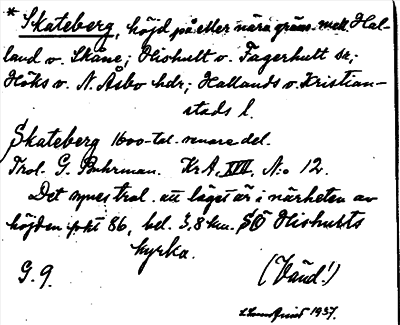 * Skateberg, höjd på eller nära gräns mell. Hal-
land o. Skåne; Hishult o. Fagerhult sn;
Höks o. N. Åsbo hdr; Hallands o. Kristian-
stads l.
Skateberg 1600-tal. senare del.
Trol. G. Buhrman. KrA. XVII, No 12.
Det synes trol. att läget är i närheten av
höjden pkt 86, bel. 3,8 km. SÖ Hishults
kyrka.
G. 9. (Vänd!)
1937.